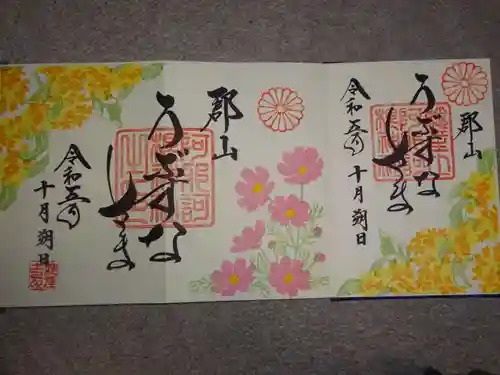 郡山
うぶすな
さま
令和五年十月朔日
郡山
うぶすな
さま
令和五年
十月朔日